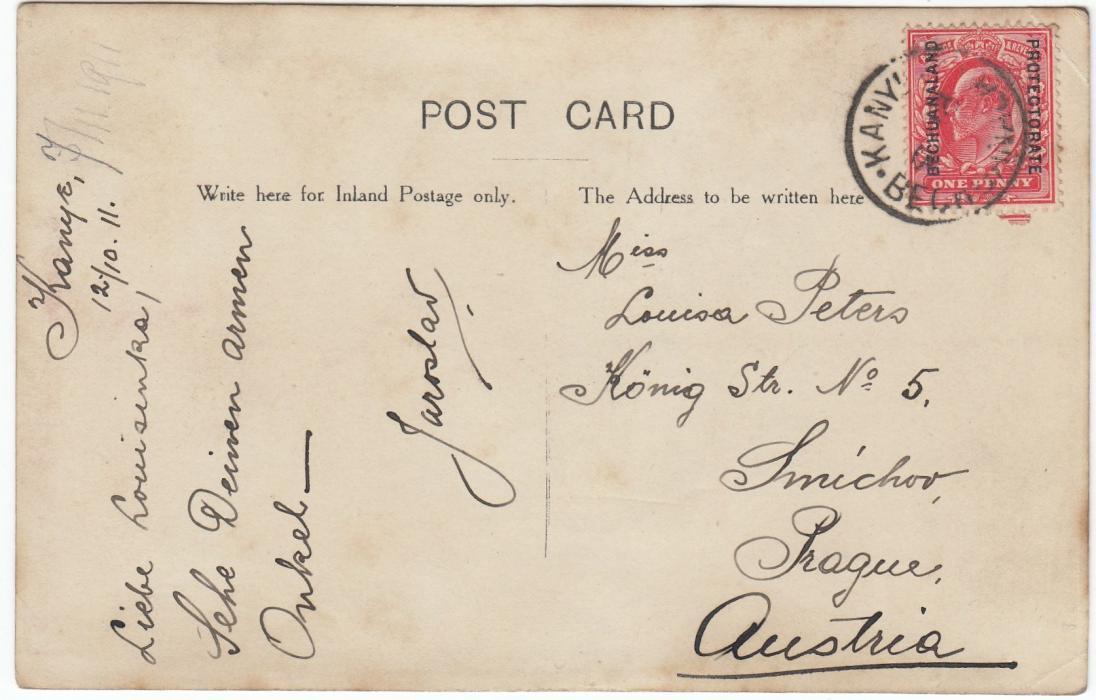 POST CARD
Write here for Inland Postage only.
The Address to be written here
Kanye, 7/11 1911
12/10. 11.
Liebe Louisinka,
Sehe Deinen armen
Onkel —
Jaroslav
Miss
Louisa Peters
König Str. No 5.
Smíchov,
Prague,
Austria
BECHUANALAND
PROTECTORATE
POSTAGE & REVENUE
ONE PENNY
KANYE